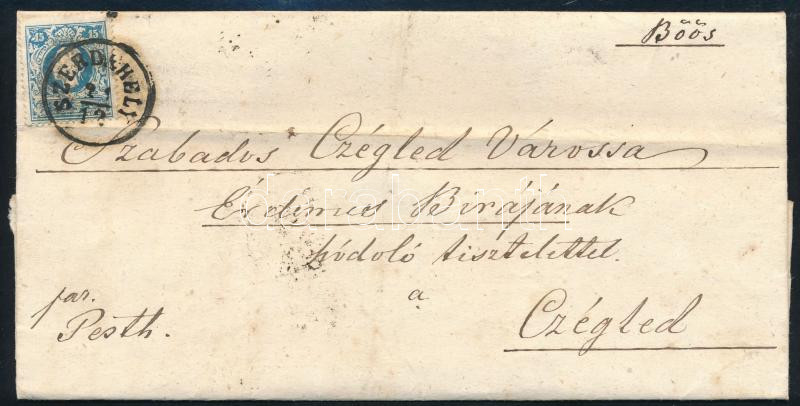 15 15
Bőős
SZERDAHELY
12
Szabados Czégled Várossa
Érdemes Birájának
hódoló tisztelettel.
a
par.
Pesth.
Czégled
darabanth